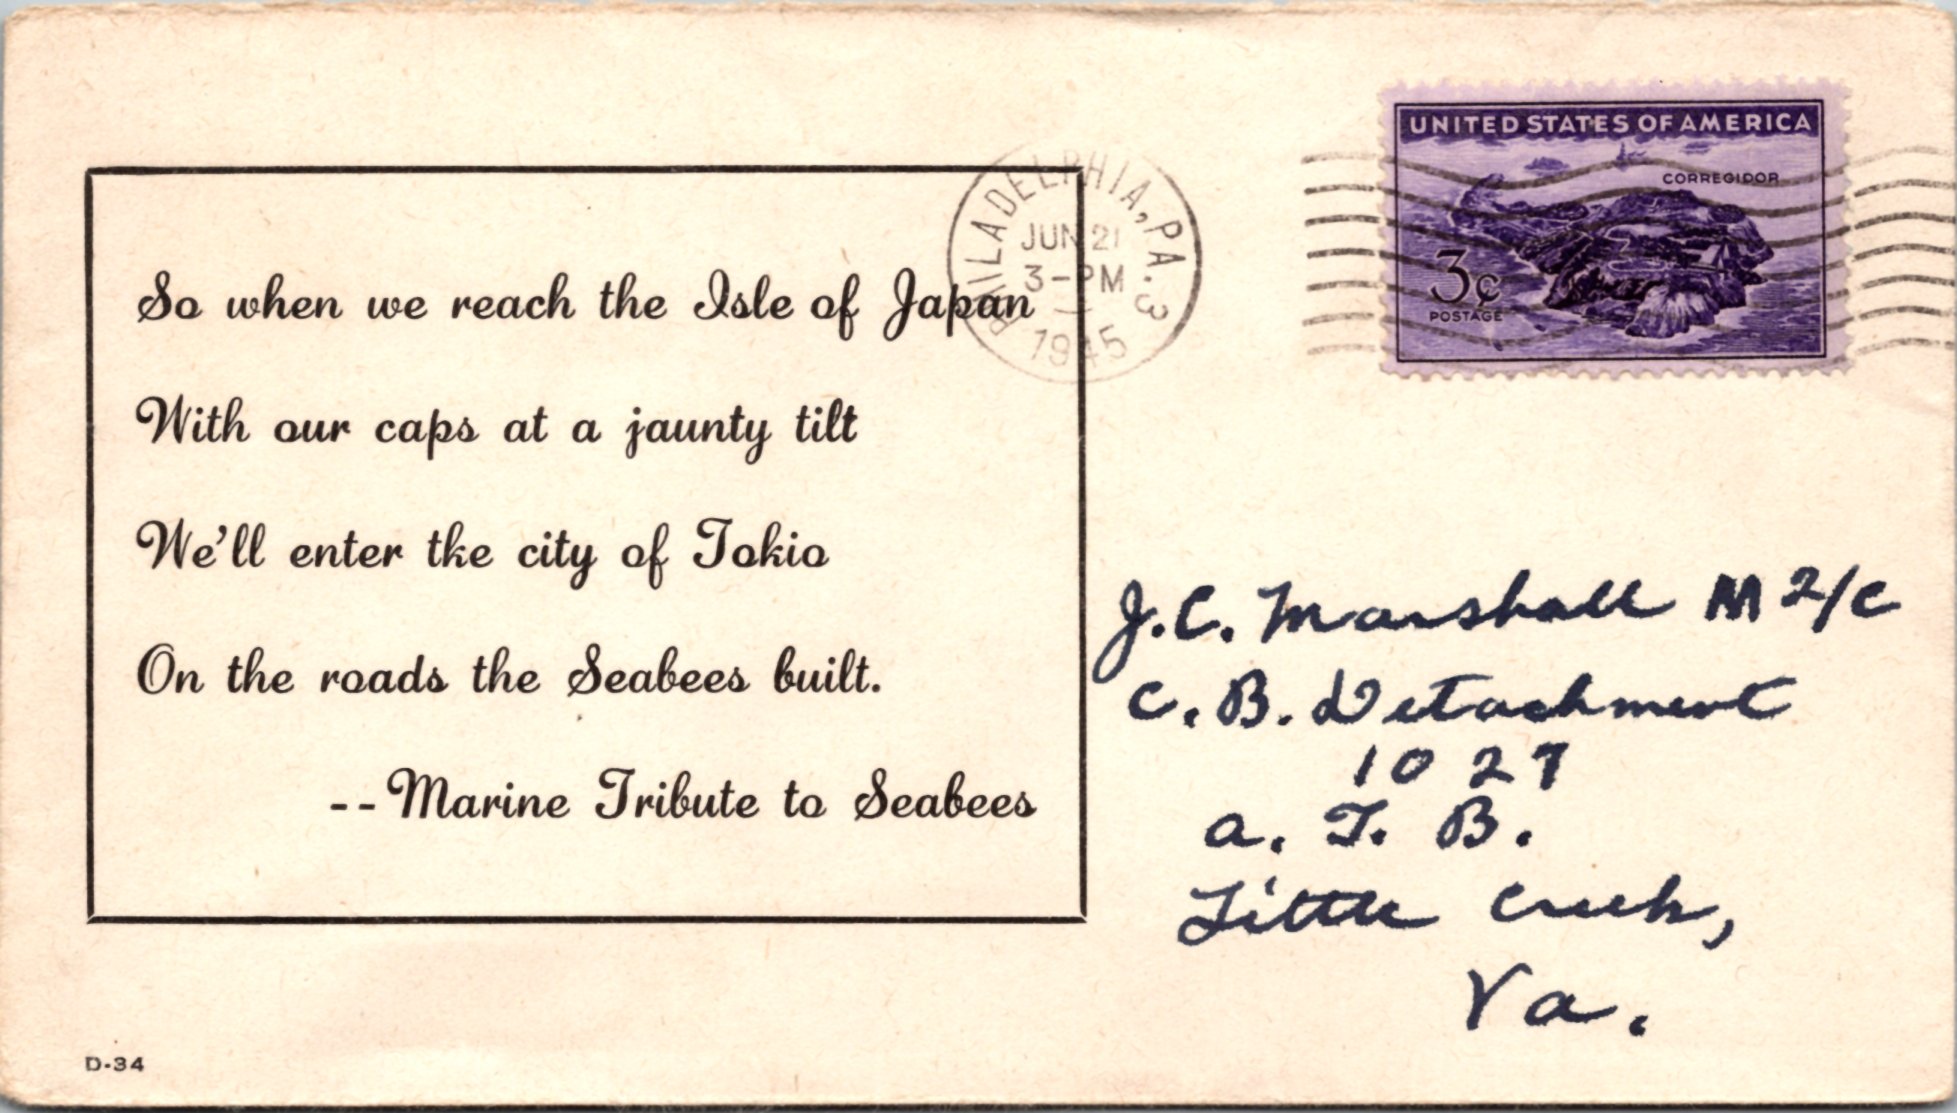 So when we reach the Isle of Japan
With our caps at a jaunty tilt
We'll enter tke city of Tokio
On the roads the Seabees built.
--Marine Tribute to Seabees
D-34
PHILADELPHIA, PA. 3
JUN 21
3-PM
1945
UNITED STATES OF AMERICA
CORREGIDOR
3¢
POSTAGE
J.C. Marshall M 2/C
C. B. Detachment
1027
A. T. B.
Little Creek,
Va.